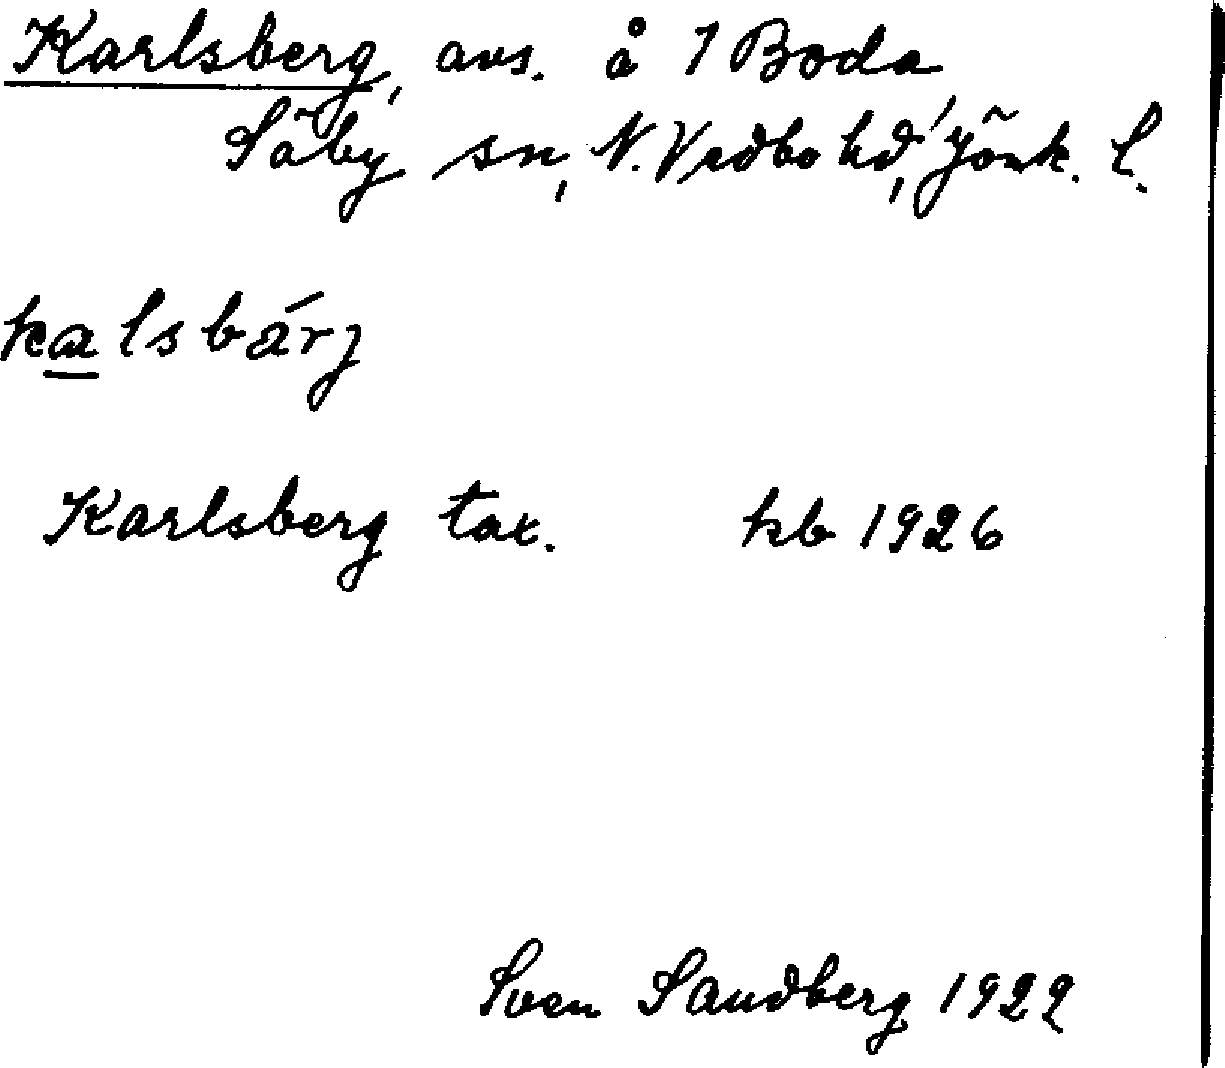 Karlsberg, avs. å 1 Boda
Säby sn, N. Vedbo hd, Jönk. l.
kalsbárj
Karlsberg tax. kb 1926
Sven Sandberg 1922